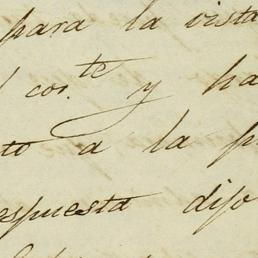 para la vista
cor.te y ha
to a la p
espuesta dijo